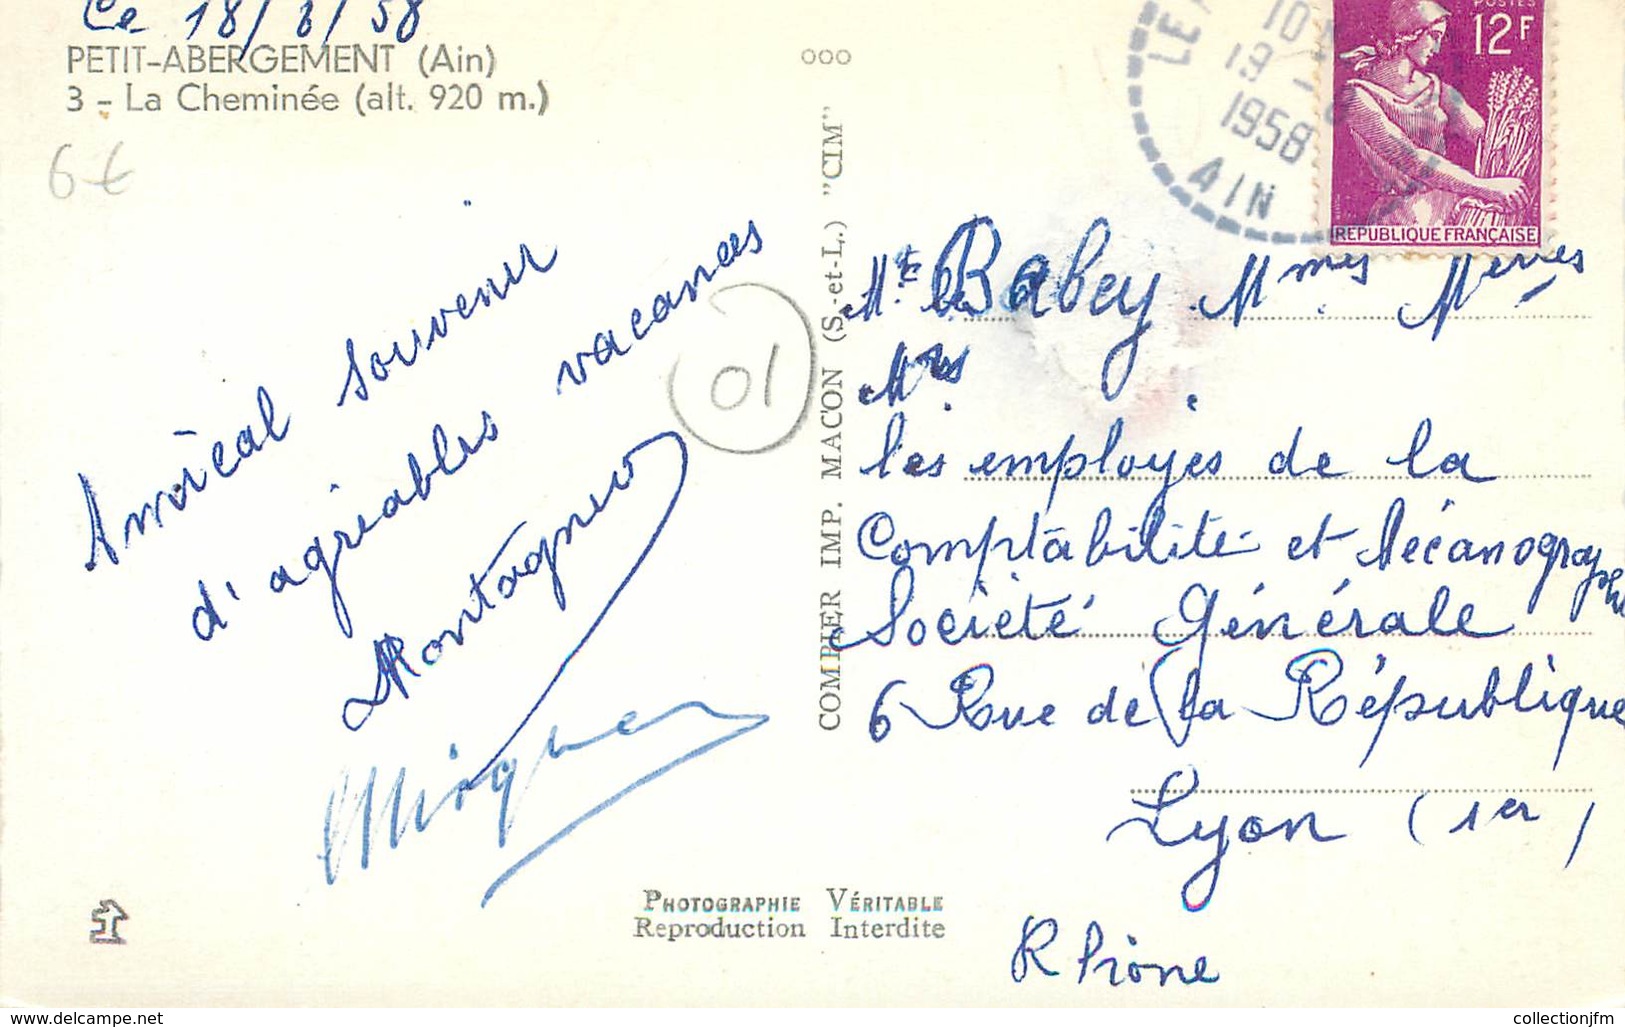 Ce 18/8/58
PETIT-ABERGEMENT (Ain)
3 - La Cheminée (alt. 920 m.)
6€
Amical souvenir
d'agréables vacances
01
PHOTOGRAPHIE VÉRITABLE
Reproduction Interdite
COMBIER IMP. MACON (S.-et-L.) "CIM"
ooo
10
19 -
1958
AIN
POSTES
12F
REPUBLIQUE FRANÇAISE
Babey Mmes
Mrs
les employés de la
Comptabilité et Mécanographie
Société Générale
6 Rue de la République
Lyon (1er)
Rhône
www.delcampe.net
collectionjfm